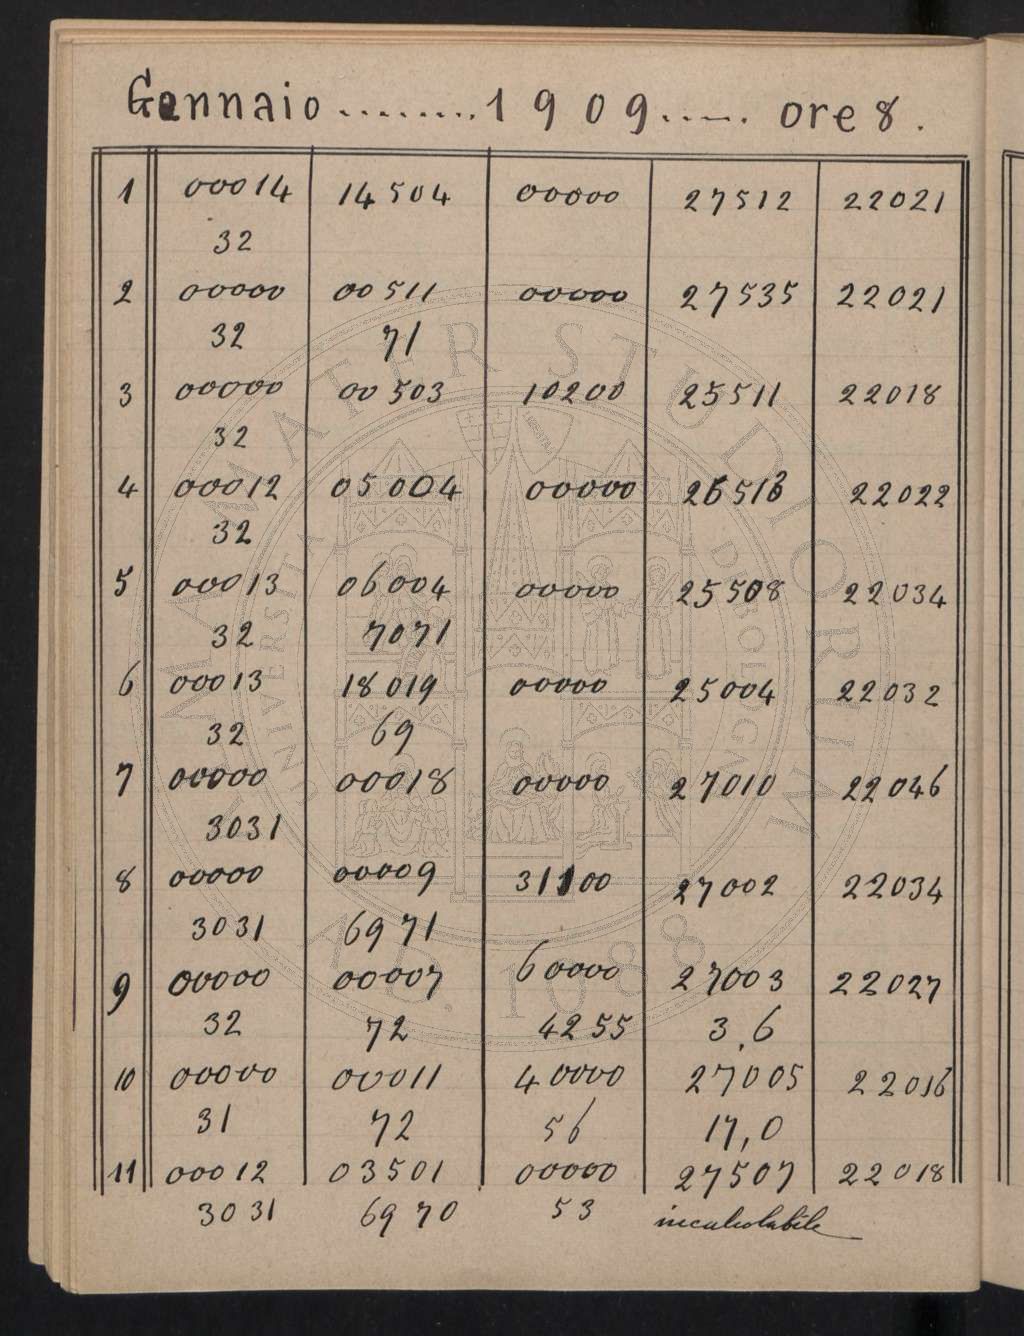 Gennaio ........ 1909 ...... ore 8.
1 00014 14504 00000 27512 22021
32
2 00000 00511 00000 27535 22021
32 71
3 00000 00503 10200 25511 22018
32
4 00012 05004 00000 22022
32
5 00013 06004 00000 25508 22034
32 7071
6 00013 18019 00000 25004 22032
32 69
7 00000 00018 00000 27010 22046
3031
8 00000 00009 31100 27002 22034
3031 6971
9 00000 00007 60000 27003 22027
32 72 4255 3,6
10 00000 00011 40000 27005 22016
31 72 56 17,0
11 00012 03501 00000 27507 22018
3031 6970 53 incalcolabile
ALMA MATER STUDIORUM
UNIVERSITÀ DI BOLOGNA
A.D. 1088